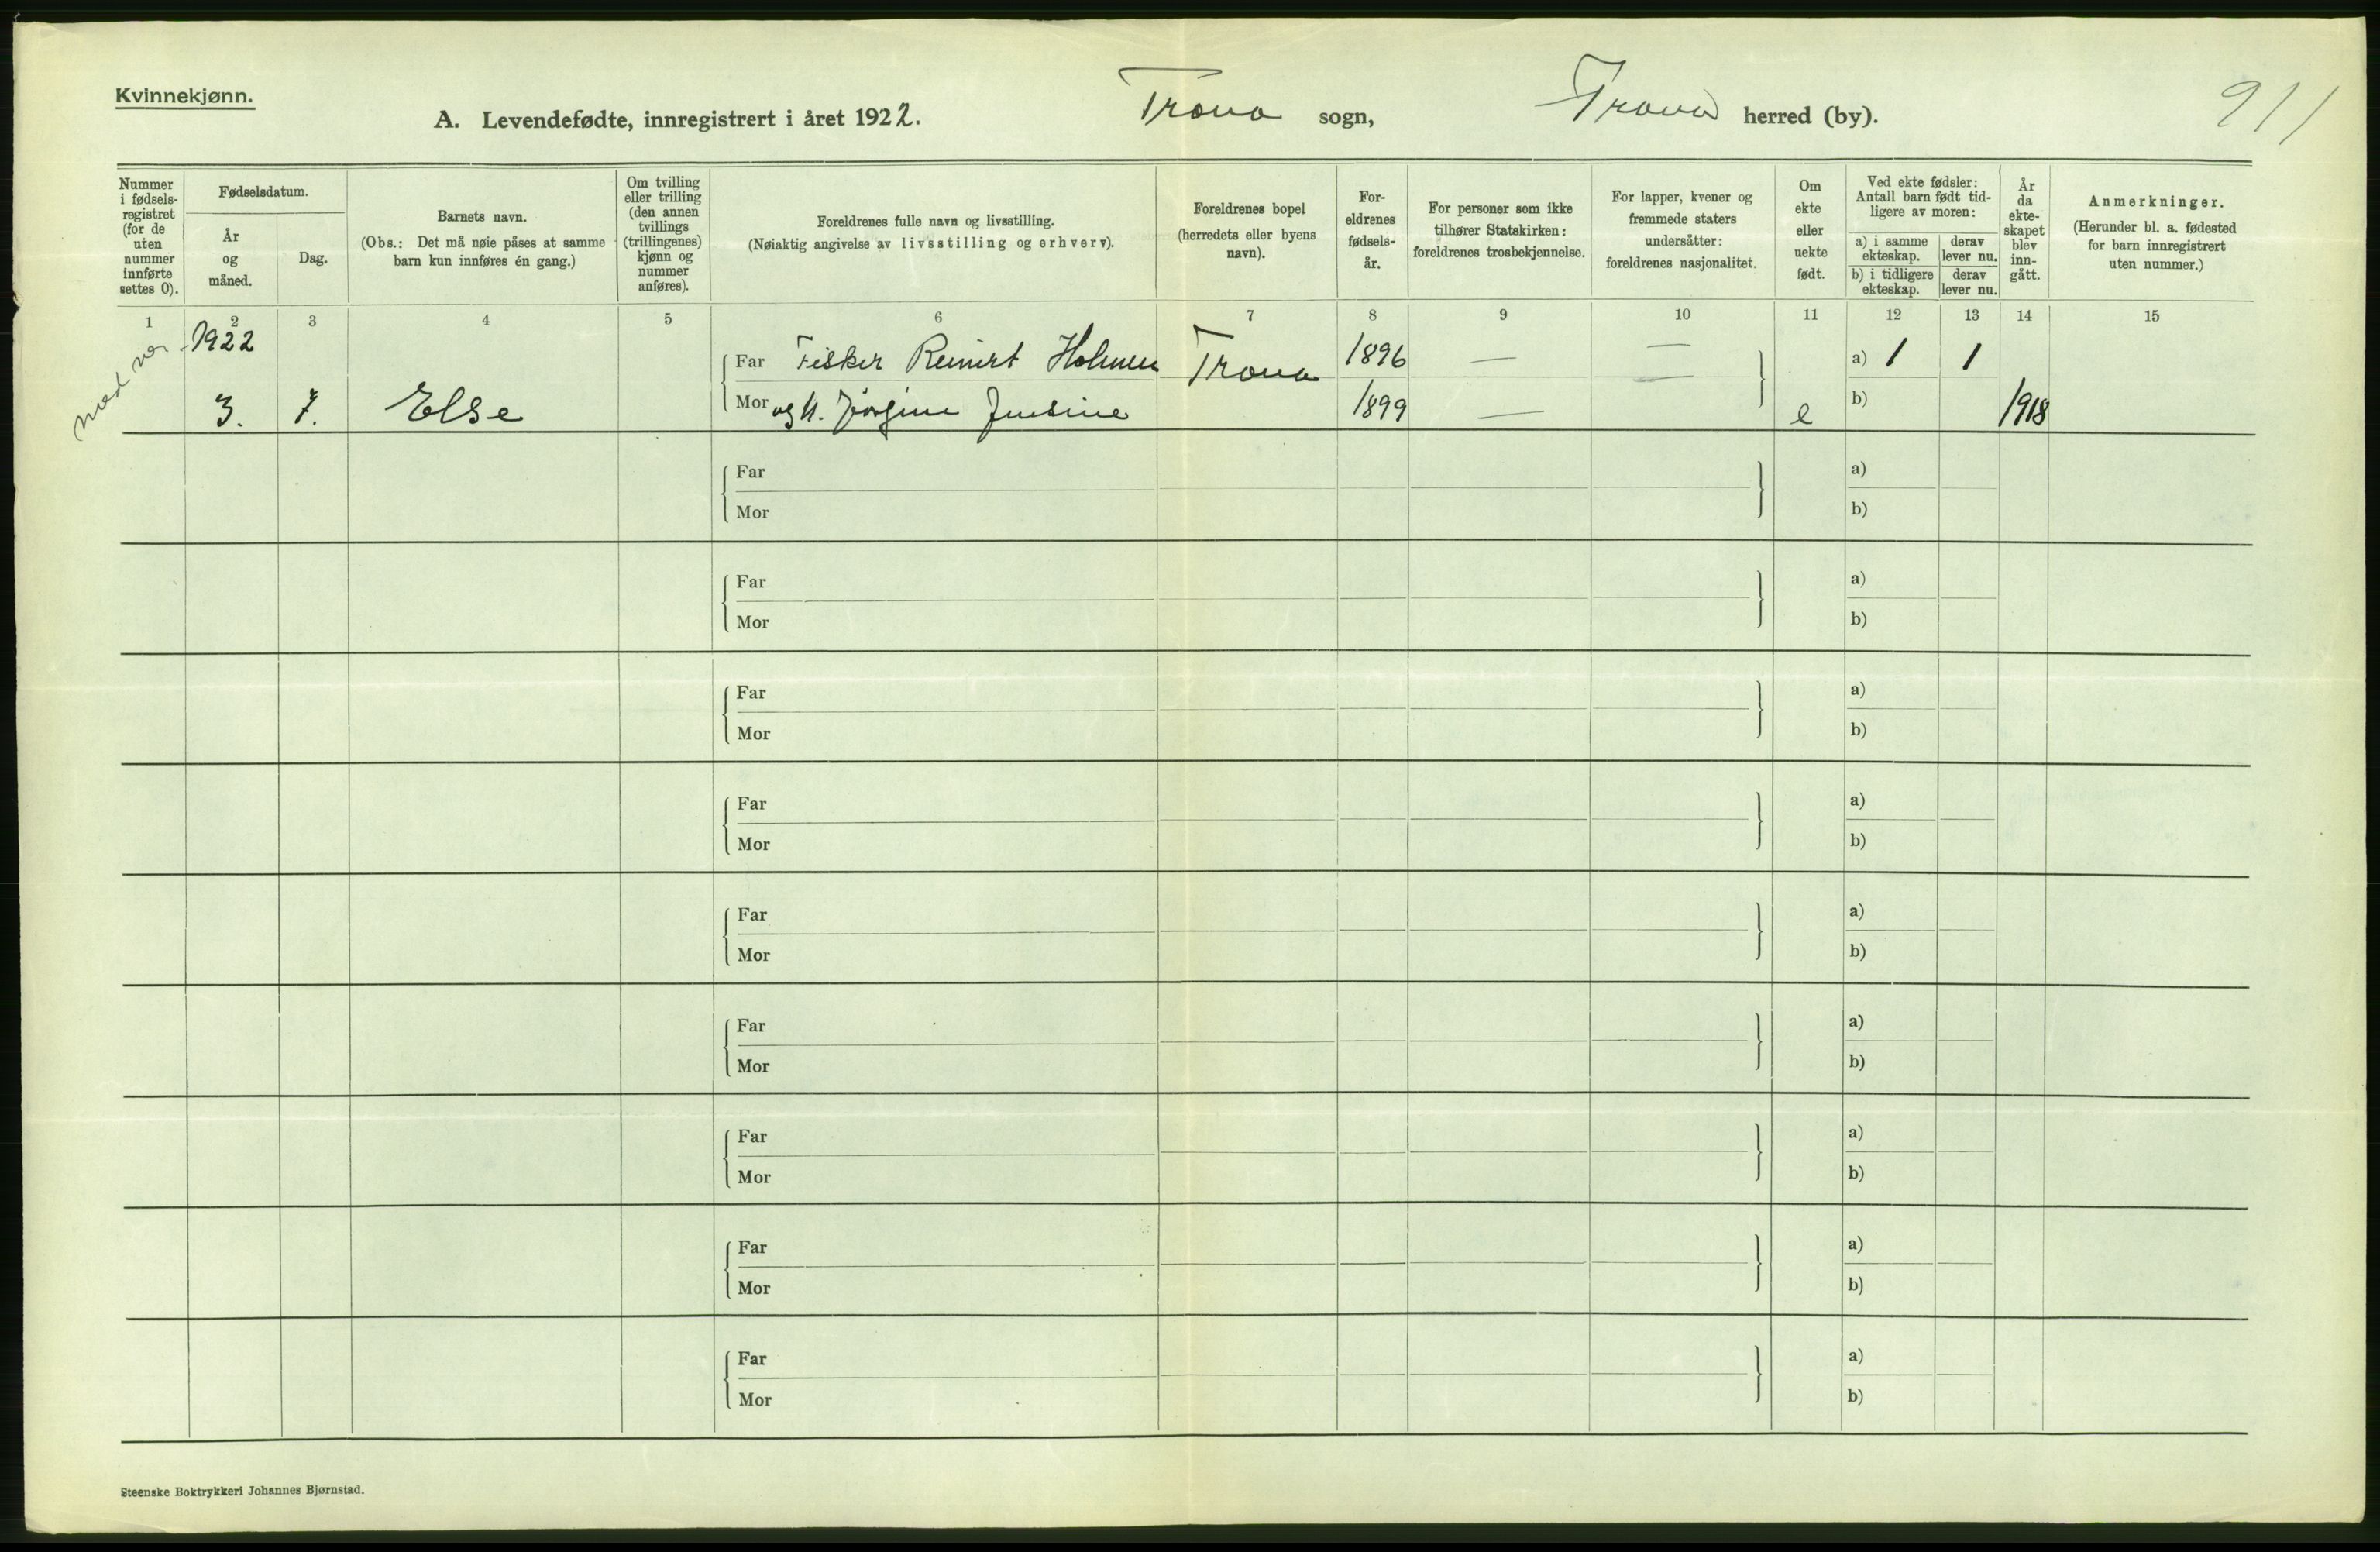 Kvinnekjønn.
A. Levendefødte, innregistrert i året 1922. Træna sogn, Træna herred (by). 911
Nummer i fødsels-registret (for de uten nummer innførte settes 0).
Fødselsdatum.
År og måned.
Dag.
Barnets navn.
(Obs.: Det må nøie påses at samme barn kun innføres én gang.)
Om tvilling eller trilling (den annen tvillings (trillingenes) kjønn og nummer anføres).
Foreldrenes fulle navn og livsstilling.
(Nøiaktig angivelse av livsstilling og erhverv).
Foreldrenes bopel (herredets eller byens navn).
For-eldrenes fødsels-år.
For personer som ikke tilhører Statskirken: foreldrenes trosbekjennelse.
For lapper, kvener og fremmede staters undersåtter: foreldrenes nasjonalitet.
Om ekte eller uekte født.
Ved ekte fødsler: Antall barn født tid-ligere av moren:
a) i samme ekteskap.
derav lever nu.
b) i tidligere ekteskap.
derav lever nu.
År da ekte-skapet blev inn-gått.
Anmerkninger.
(Herunder bl. a. fødested for barn innregistrert uten nummer.)
1 2 3 4 5 6 7 8 9 10 11 12 13 14 15
1922
Far Fisker Reinert Holmen Træna 1896 — — a) 1 1
3. 7. Else Mor og H. Jörgine Jensine 1899 — — e b) 1918
Far a)
Mor b)
Far a)
Mor b)
Far a)
Mor b)
Far a)
Mor b)
Far a)
Mor b)
Far a)
Mor b)
Far a)
Mor b)
Far a)
Mor b)
Far a)
Mor b)
Steenske Boktrykkeri Johannes Bjørnstad.